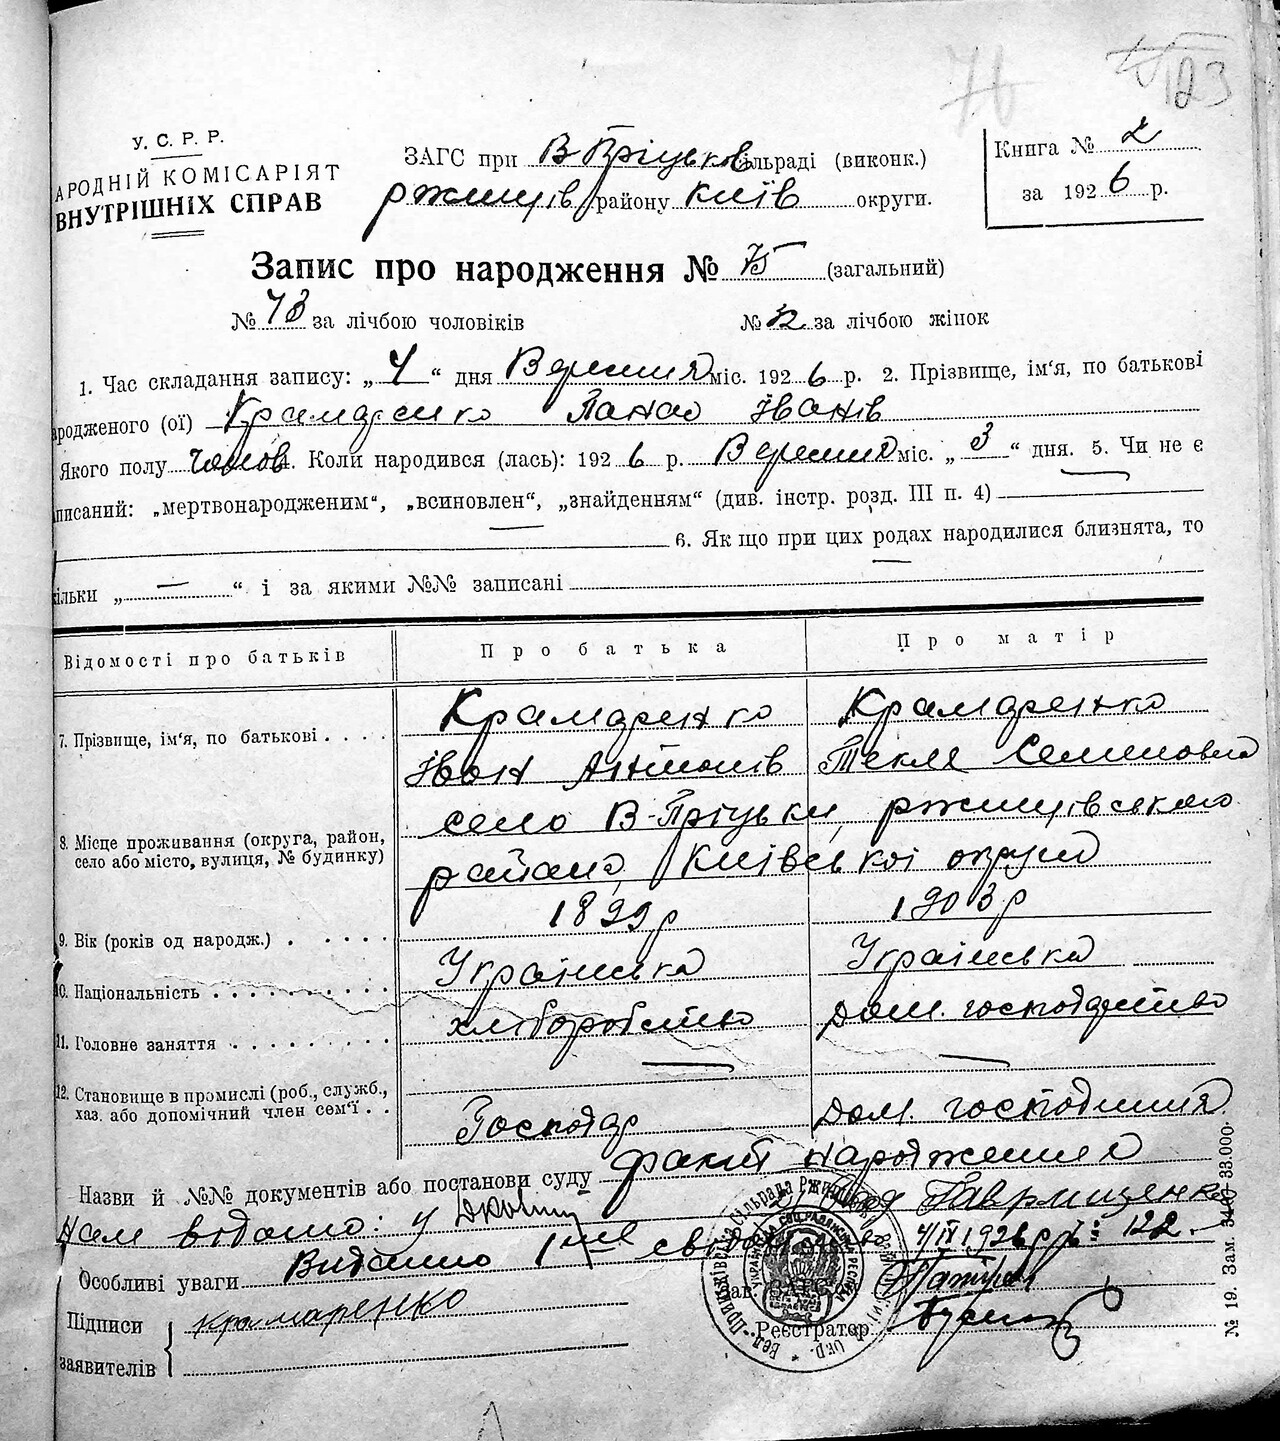 123
У. С. Р. Р.
АРОДНІЙ КОМІСАРІЯТ
ВНУТРІШНІХ СПРАВ
ЗАГС при В Пріцьков сільраді (виконк.)
ржищів району Київ округи.
Книга № 2
за 1926 р.
Запис про народження № 75 (загальний)
№ 43 за лічбою чоловіків
№ 32 за лічбою жінок
1. Час складання запису: „ 4 “ дня Вересня міс. 1926 р. 2. Прізвище, ім'я, по батькові
ародженого (ої) Крамаренко Панас Іванів
Якого полу чолов. Коли народився (лась): 1926 р. Вересня міс. „ 3 “ дня. 5. Чи не є
писаний: „мертвонародженим“, „всиновлен“, „знайденням“ (див. інстр. розд. III п. 4)
6. Як що при цих родах народилися близнята, то
ільки „ — “ і за якими №№ записані
Відомості про батьків
Про батька
Про матір
7. Прізвище, ім'я, по батькові . . . .
Крамаренко
Іван Антонів
Крамаренко
Текля Семеновна
8. Місце проживання (округа, район,
село або місто, вулиця, № будинку)
село В-Пріцьки, ржищівського
району, Київської округи
9. Вік (років од народж.) . . . . .
1899р
1903р
10. Національність . . . . . . . . . .
Українська
Українська
11. Головне заняття . . . . . . . . .
хліборобство
Дом. господарство
12. Становище в промислі (роб., служб.,
хаз. або допомічний член сем'ї . .
Господар
Дом. господиня
Назви й №№ документів або постанови суду факт народження
нам відомо: у
Гаврищенко
Особливі уваги Видано 1 4/ІХ 1926р № 122.
Зав. ЗАГС'ом
Підписи
заявителів
Крамаренко
Реєстратор
№ 19. Зам. 3140—33.000